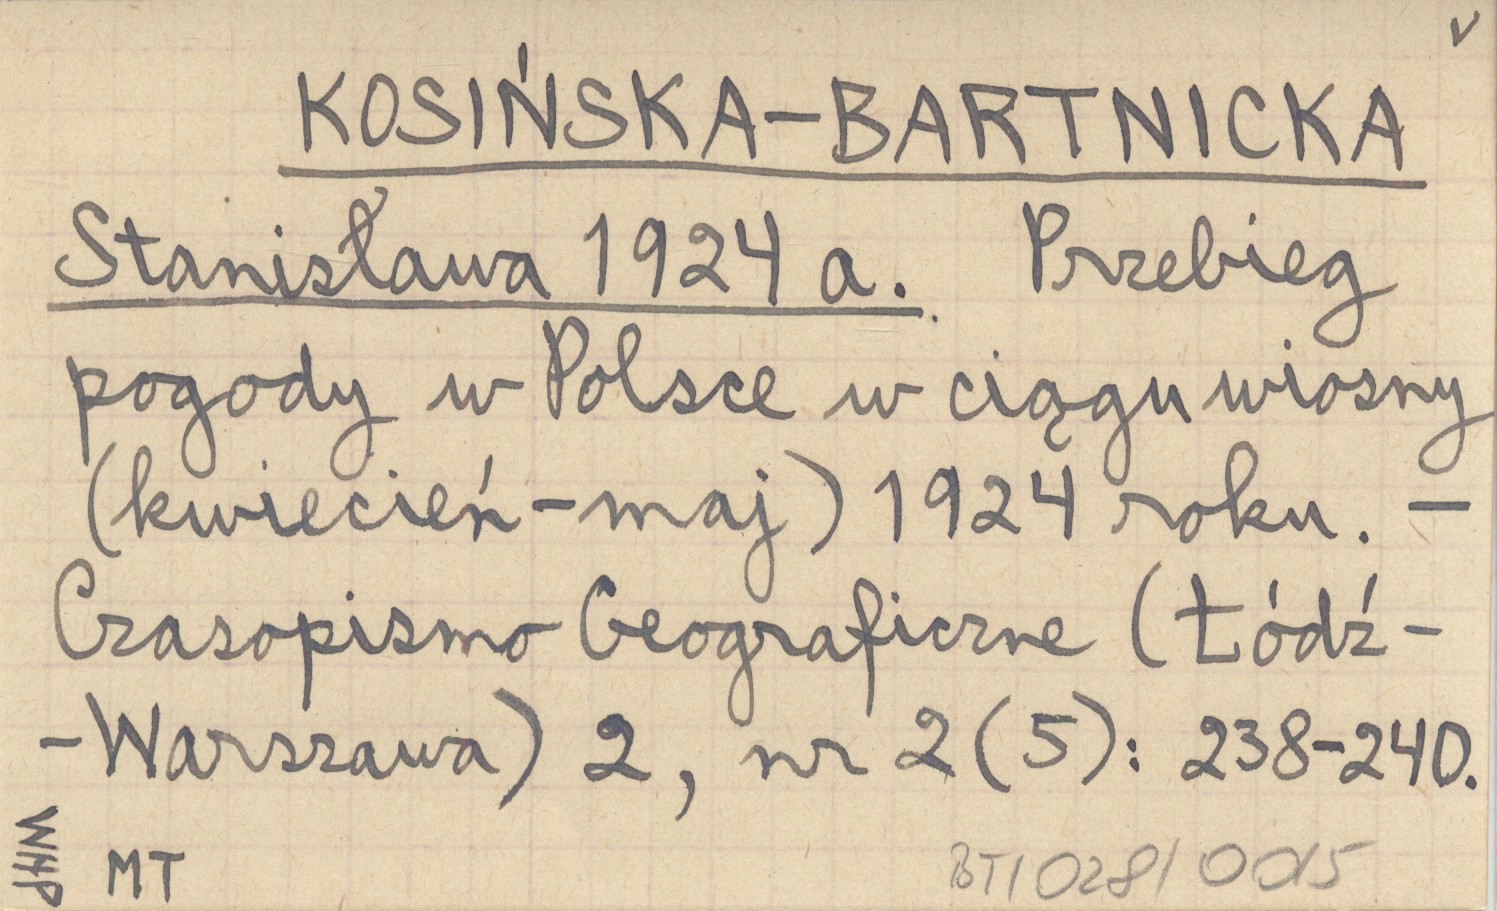 v
KOSIŃSKA-BARTNICKA
Stanisława 1924 a. Przebieg
pogody w Polsce w ciągu wiosny
(kwiecień-maj) 1924 roku. -
Czasopismo Geograficzne (Łódź-
-Warszawa) 2, nr 2(5): 238-240.
WHP
MT
BT/028/0015